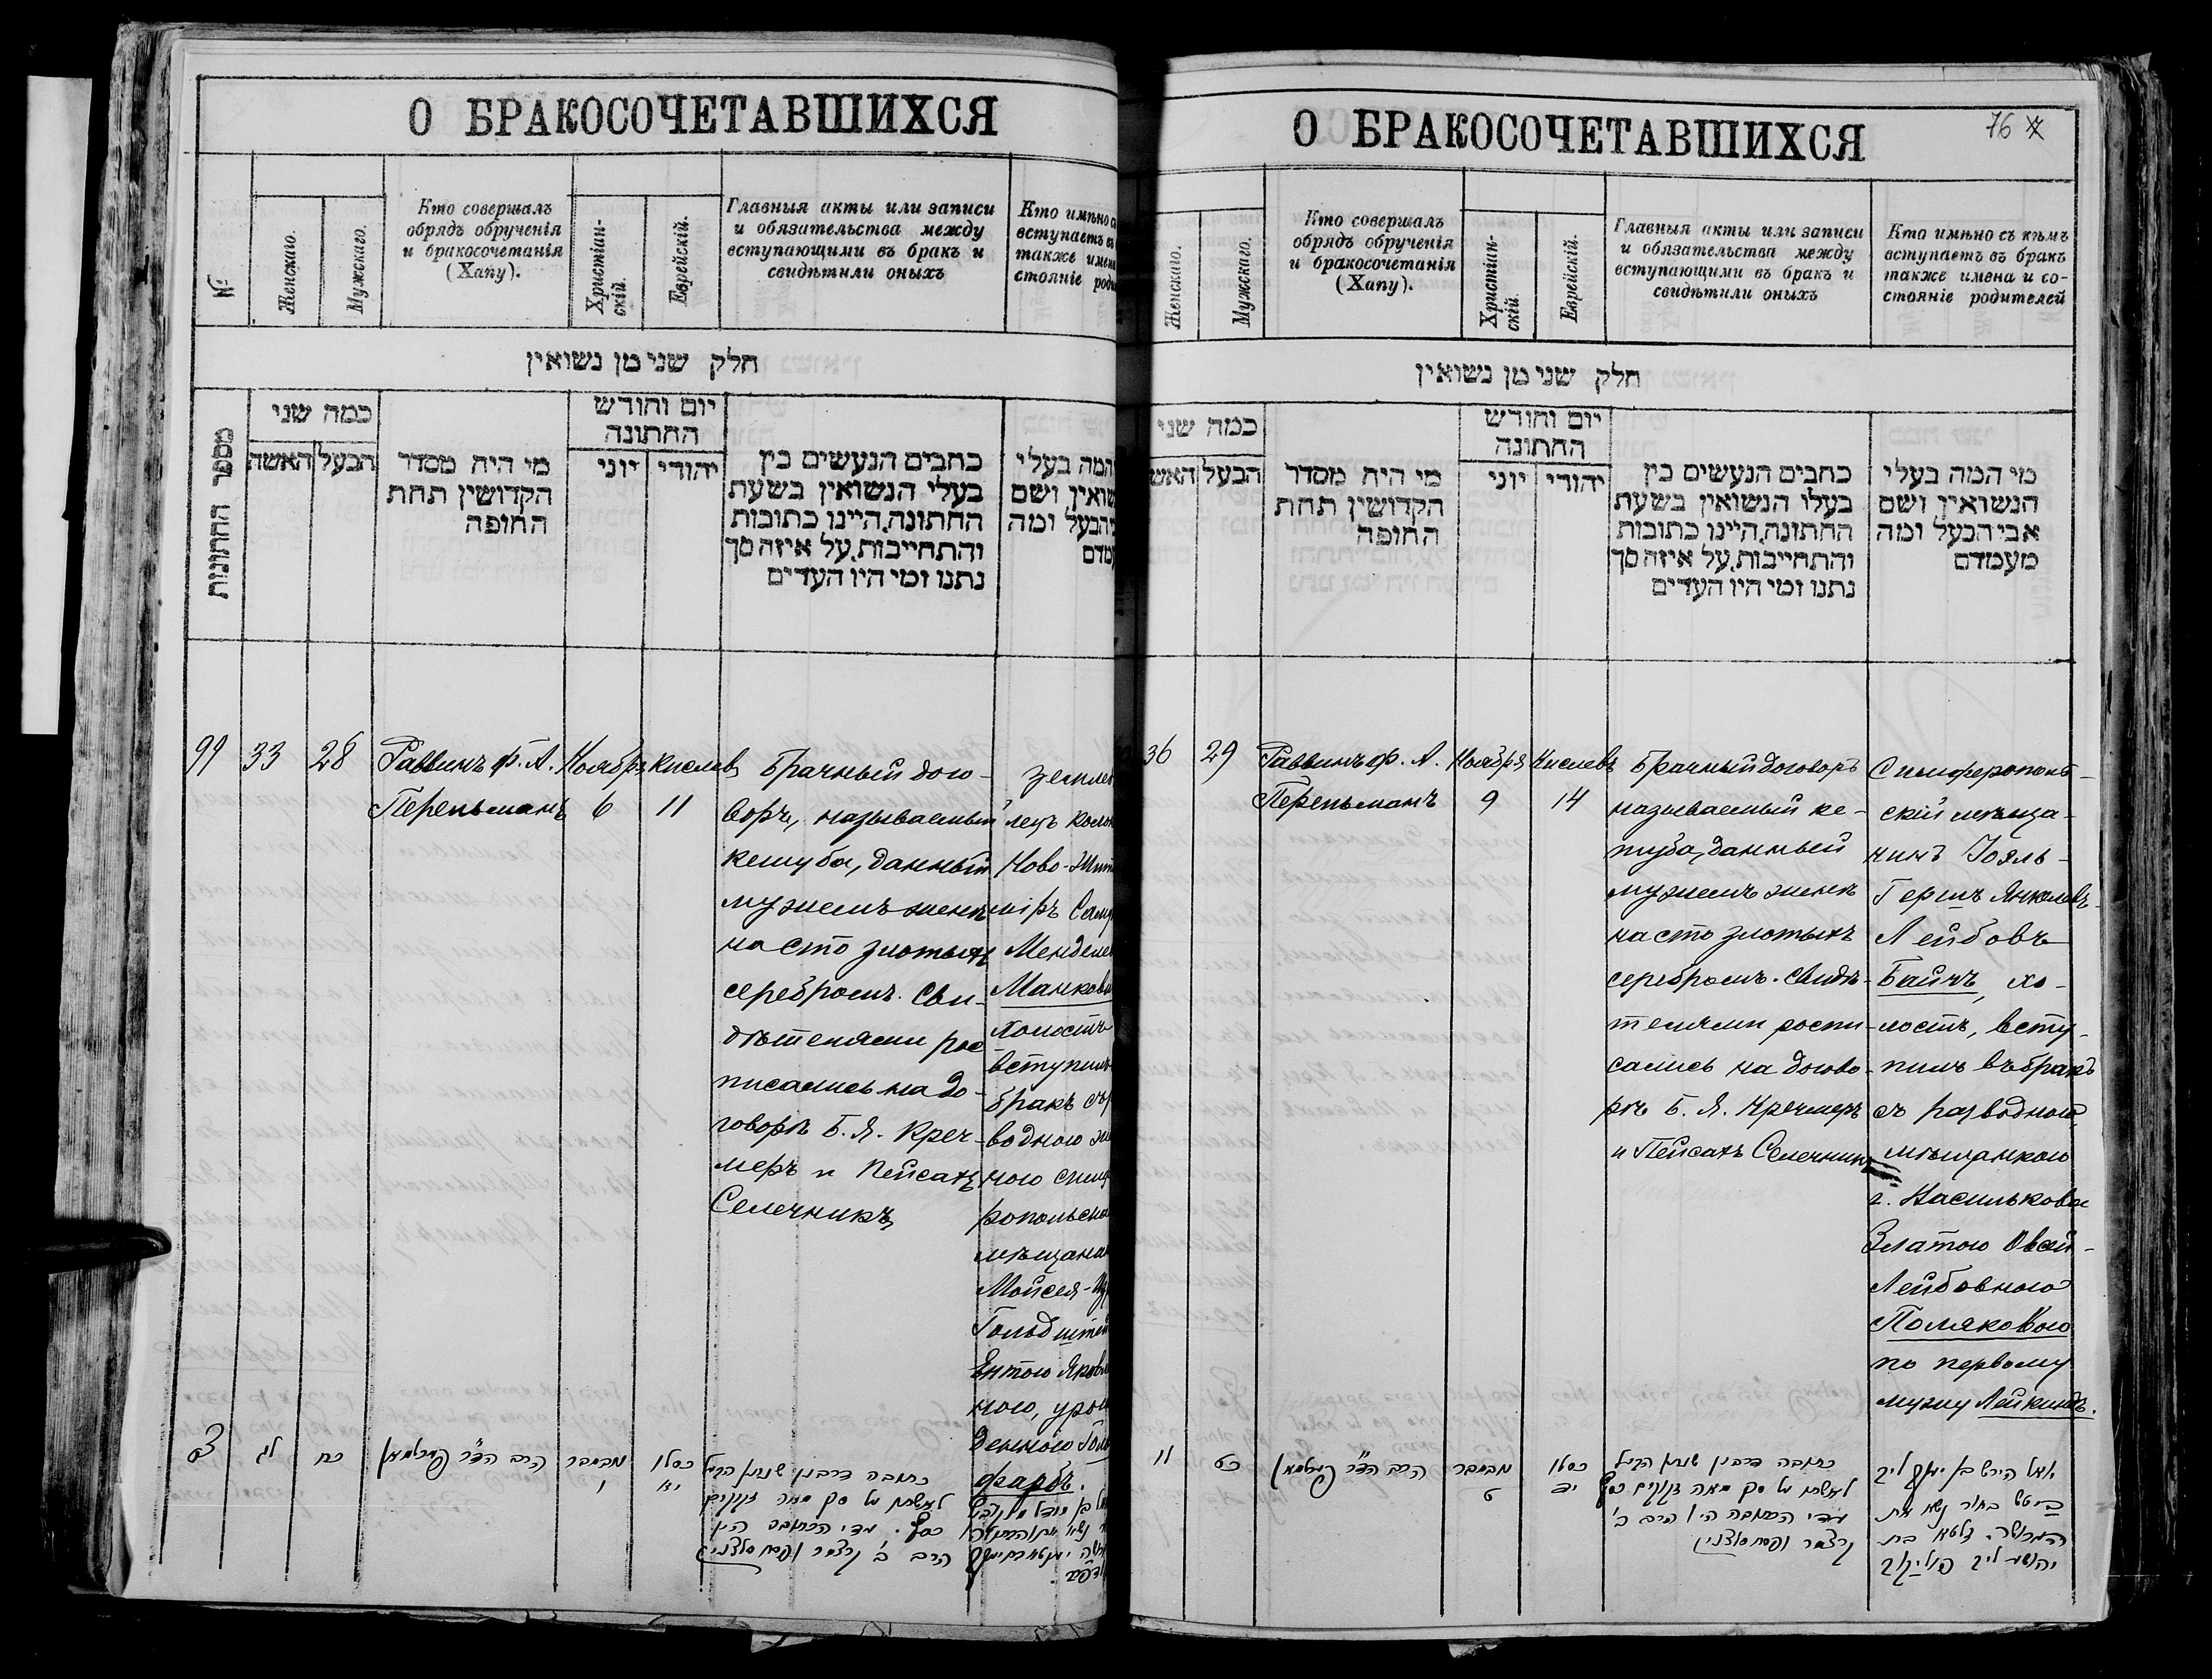 О БРАКОСОЧЕТАВШИХСЯ
№
Женскаго.
Мужскаго.
Кто совершалъ
обрядъ обрученія
и бракосочетанія
(Хапу).
Христіан-
скій.
Еврейскій.
Главныя акты или записи
и обязательства между
вступающими въ бракъ и
свидѣтили оныхъ
Кто имѣно
вступаетъ
также имена
стояніе
חלק שני מן נשואין
מספר החתונות
כמה שני
האשה
הבעל
מי היה מסדר
הקדושין תחת
החופה
יום וחודש
החתונה
יוני
יהודי
כתבים הנעשים בין
בעלי הנשואין בשעת
החתונה, היינו כתובות
והתחייבות, על איזה סך
נתנו ומי היו העדים
המה בעלי
שואין ושם
הבעל ומה
מדם
99
33
28
Раввинъ Ф. А.
Перепьманъ
Ноября
6
Кислевъ
11
Брачный дого-
воръ, называемый
кетуба, данный
мужемъ женѣ
на сто злотыхъ
серебромъ. Сви-
дѣтелями рос
писались на до-
говорѣ Б. Я. Креч-
меръ и Пейсахъ
Селечникъ
земле
лецъ коло
Ново-Жит
міръ Сам
Менделе
Манкови
холостъ
вступилъ
бракъ съ
водною
ною симф
ропольска
мѣщанина
Мойсея-
Гольдштей
Ентою Яковл
ною, урож
денною Голь
фарбъ.
לג
כח
הרב הד"ר פערלמאן
נאבמבר
ו
כסלו
יא
כתובה דרבנן שנתן הבעל
לאשתו על סך מאה זקוקים
כסף. עדי הכתובה היו
הרב ב' קרצמר ופסח סלצניק
О БРАКОСОЧЕТАВШИХСЯ
76
Женскаго.
Мужскаго.
Кто совершалъ
обрядъ обрученія
и бракосочетанія
(Хапу).
Христіан-
скій.
Еврейскій.
Главныя акты или записи
и обязательства между
вступающими въ бракъ и
свидѣтили оныхъ
Кто имѣно съ кѣмъ
вступаетъ въ бракъ
также имена и со-
стояніе родителей
חלק שני מן נשואין
כמה שני
האש
הבעל
מי היה מסדר
הקדושין תחת
החופה
יום וחודש
החתונה
יוני
יהודי
כתבים הנעשים בין
בעלו הנשואין בשעת
החתונה, היינו כתובות
והתחייבות, על איזה סך
נתנו ומי היו העדים
מי המה בעלי
הנשואין ושם
אבי הבעל ומה
מעמדם
36
29
Раввинъ Ф. А.
Перепьманъ
Ноября
9
Кислевъ
14
Брачный договоръ
называемый ке-
туба, данный
мужемъ женѣ
на сто злотыхъ
серебромъ. Свидѣ-
телями роспи-
сались на догово-
рѣ Б. Я. Кречмеръ
и Пейсахъ Селечникъ
Симферополь-
скій мѣща-
нинъ Іоэль-
Гершъ Янкелевъ-
Лейбовъ
Байчъ, хо-
лостъ, всту-
пилъ въ бракъ
съ разводною
мѣщанкою
г. Василькова
Златою Овсей-
Лейбовною
Поляковою
по первому
мужу Лейкиндъ.
כט
הרב הד"ר פערלמאן
נאבמבר
ט
כסלו
יד
כתובה דרבנן שנתן הבעל
לאשתו על סך מאה זקוקים כסף
עדי הכתובה היו הרב ב'
קרצמר ופסח סלצניק
יואל הירש בן יעקב ליב
בחור נשא את
הגרושה זלטא בת
יהושע ליב פוליקוב